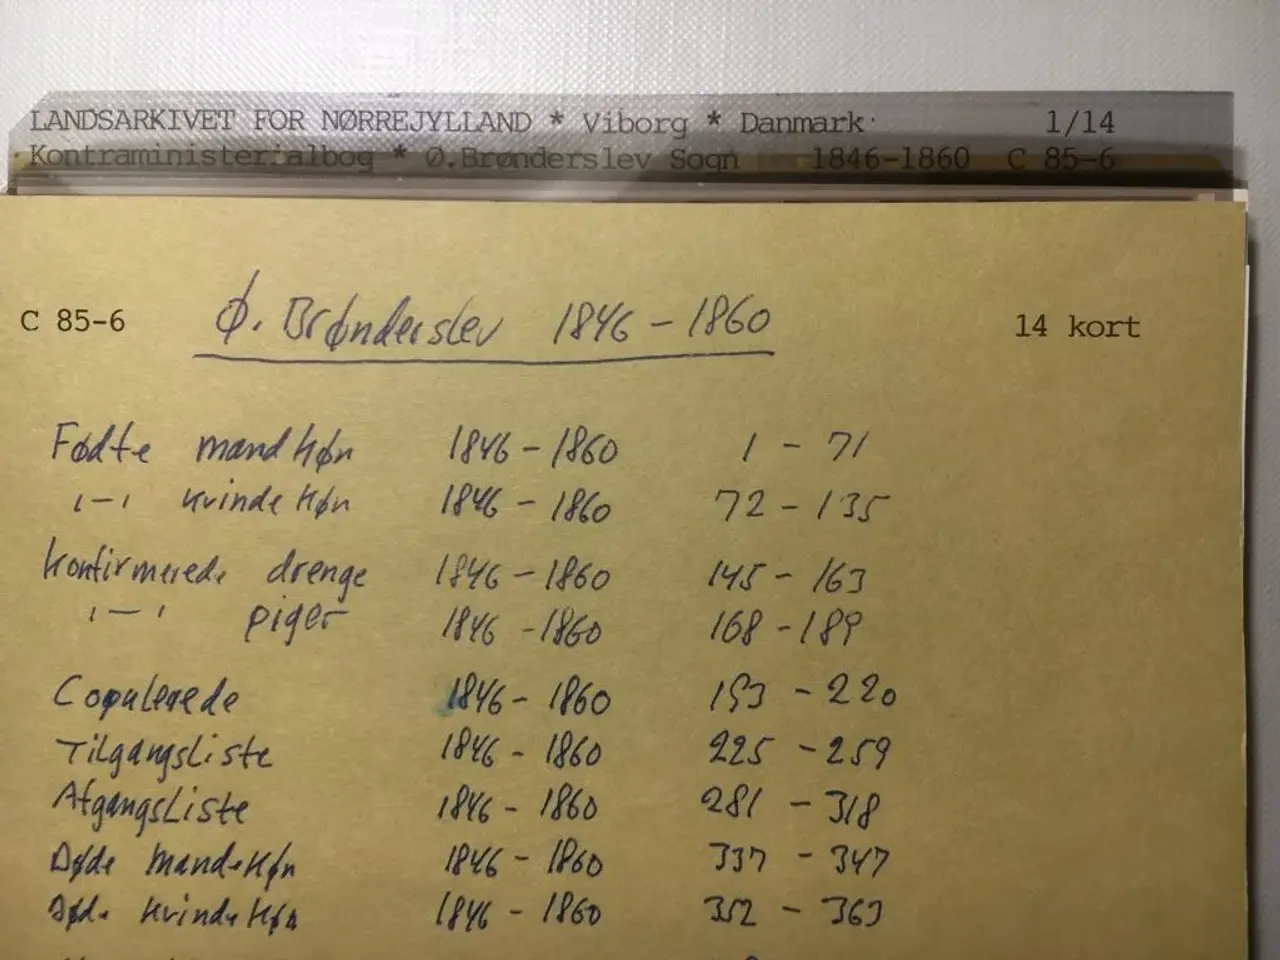 LANDSARKIVET FOR NØRREJYLLAND * Viborg * Danmark 1/14
Kontraministerialbog * Ø.Brønderslev Sogn 1846-1860 C 85-6
C 85-6 Ø. Brønderslev 1846 - 1860 14 kort
Fødte mandkøn 1846 - 1860 1 - 71
1-1 kvindekøn 1846 - 1860 72 - 135
Konfirmerede drenge 1846 - 1860 145 - 163
1-1 piger 1846 - 1860 168 - 189
Copulerede 1846 - 1860 193 - 220
Tilgangsliste 1846 - 1860 225 - 259
Afgangsliste 1846 - 1860 281 - 318
Døde mandekøn 1846 - 1860 337 - 347
Døde kvindekøn 1846 - 1860 352 - 363